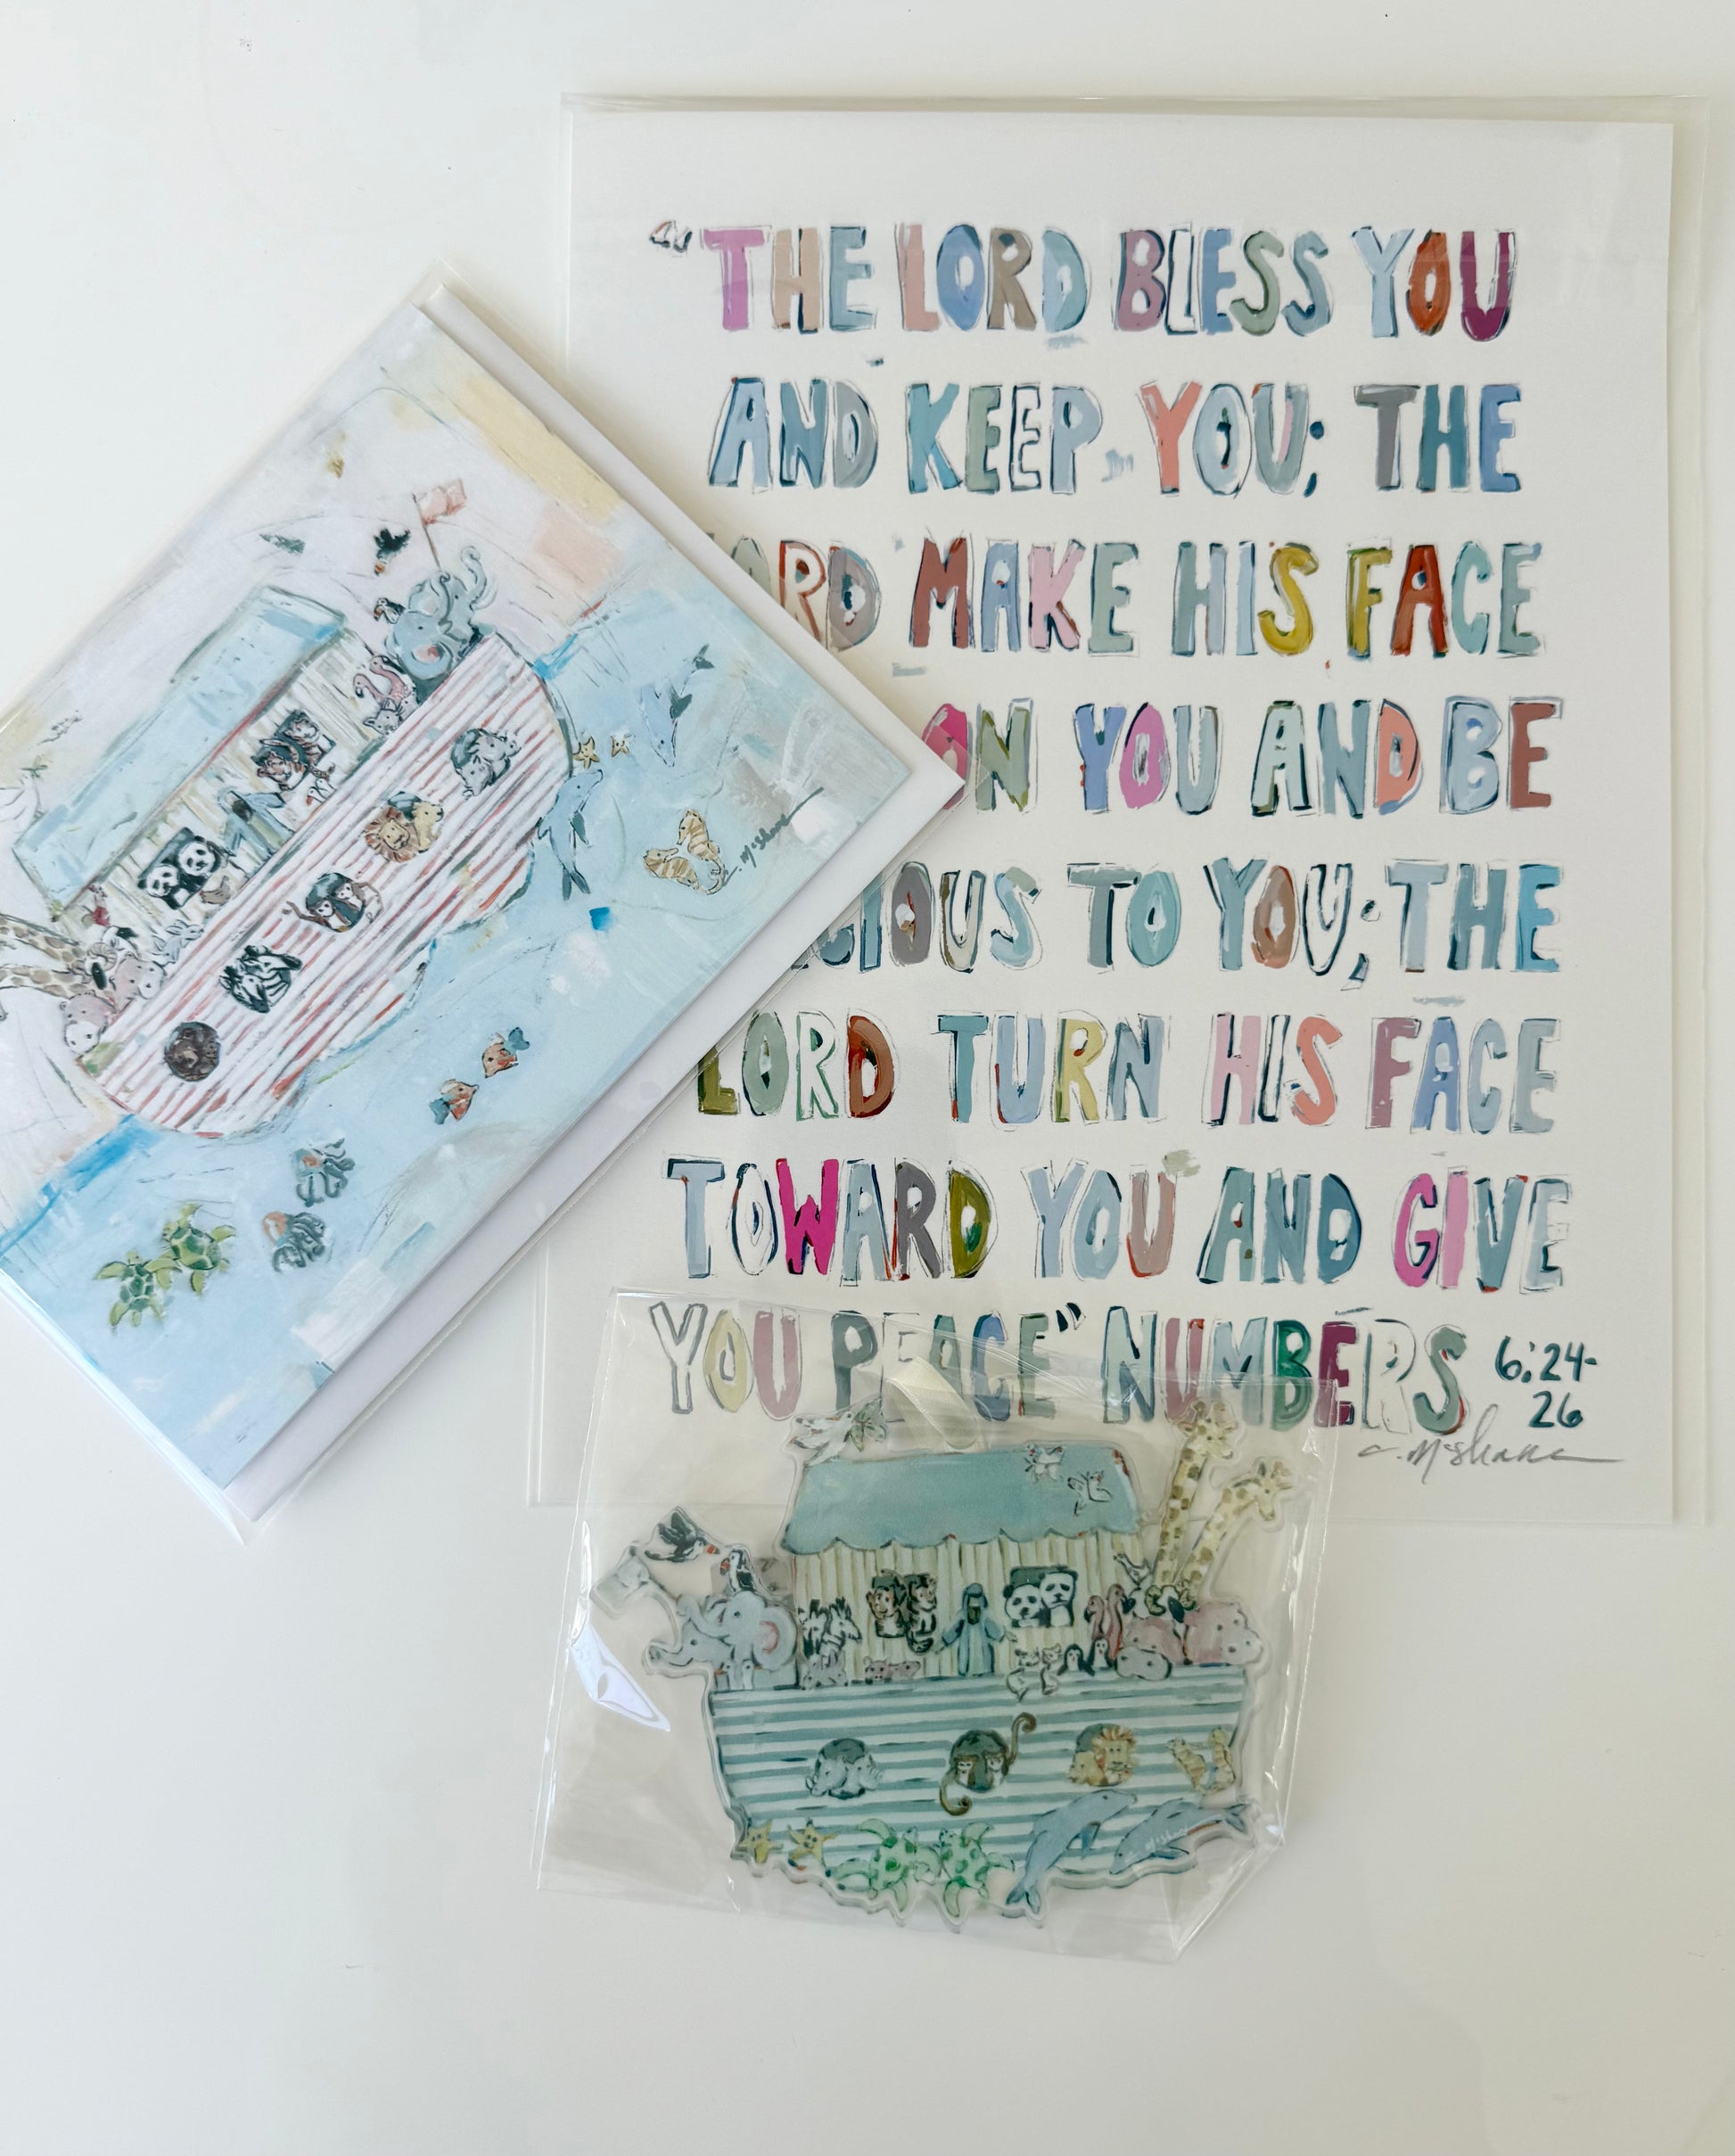 "THE LORD BLESS YOU
AND KEEP YOU; THE
MAKE HIS FACE
ON YOU AND BE
TO YOU; THE
LORD TURN HIS FACE
TOWARD YOU AND GIVE
YOU PEACE" NUMBERS 6:24-
26
C. McShane
C. McShane
McShane